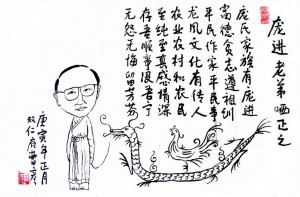 庞进老弟哂正之
庞氏家族有庞进
德志遵祖训
平民作家平民事
龙凤文化有传人
农业农村和农民
至纯至真感情深
存吾顺事没吾宁
无怨无悔留芳芬
庚寅年正月
双仁府曹